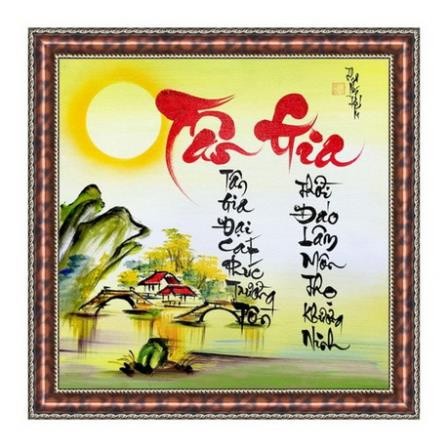 Tân Gia
Tân
Gia
Đại
Cát
Phúc
Trường
Tồn
Đáo
Lâm
Môn
Thọ
Khương
Ninh